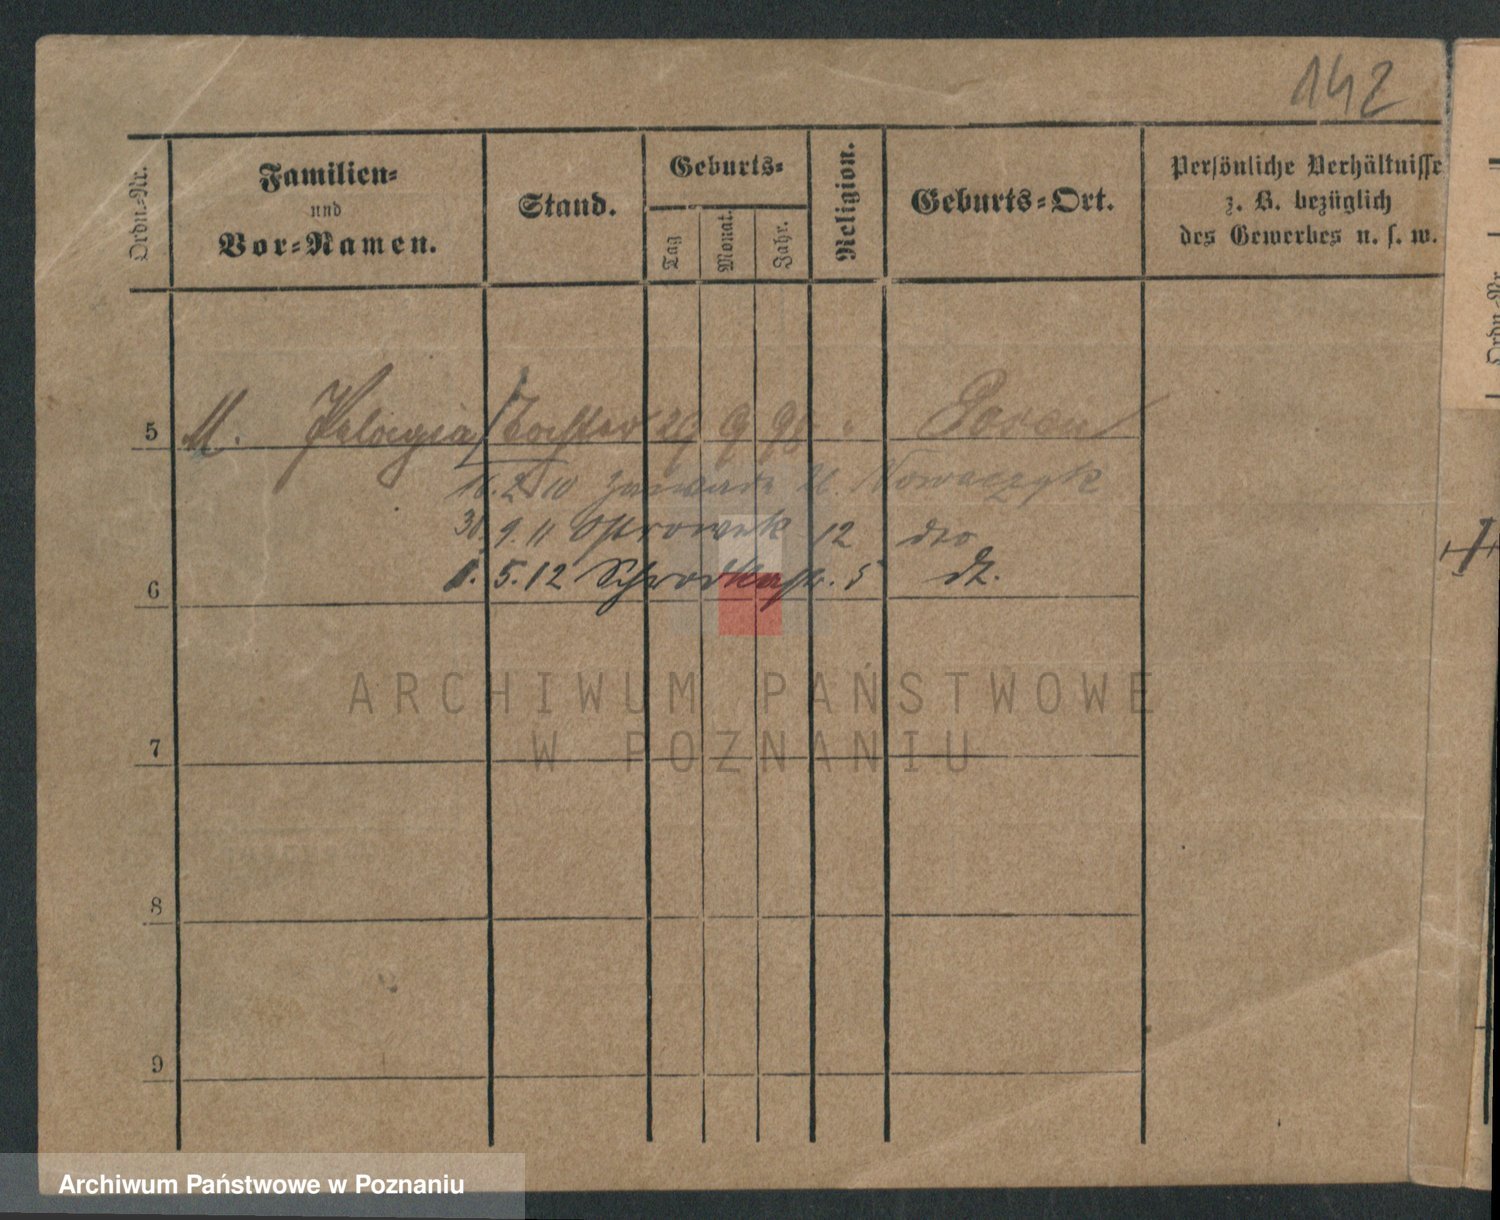 142
Ordn.-Nr.
Familien-
und
Vor-Namen.
Stand.
Geburts-
Tag
Monat.
Jahr.
Religion.
Geburts-Ort.
Persönliche Verhältnisse
z. B. bezüglich
des Gewerbes u. s. w.
Ordn.-Nr.
5 M. Pelagia Tochter 29 9 98 " Posen
16.2.10 Nowaczyk
30.9.11 Ostrowek 12 dto
1.5.12 Schrodkastr. 5 dt.
6
7
8
9
ARCHIWUM PAŃSTWOWE
W POZNANIU
Archiwum Państwowe w Poznaniu